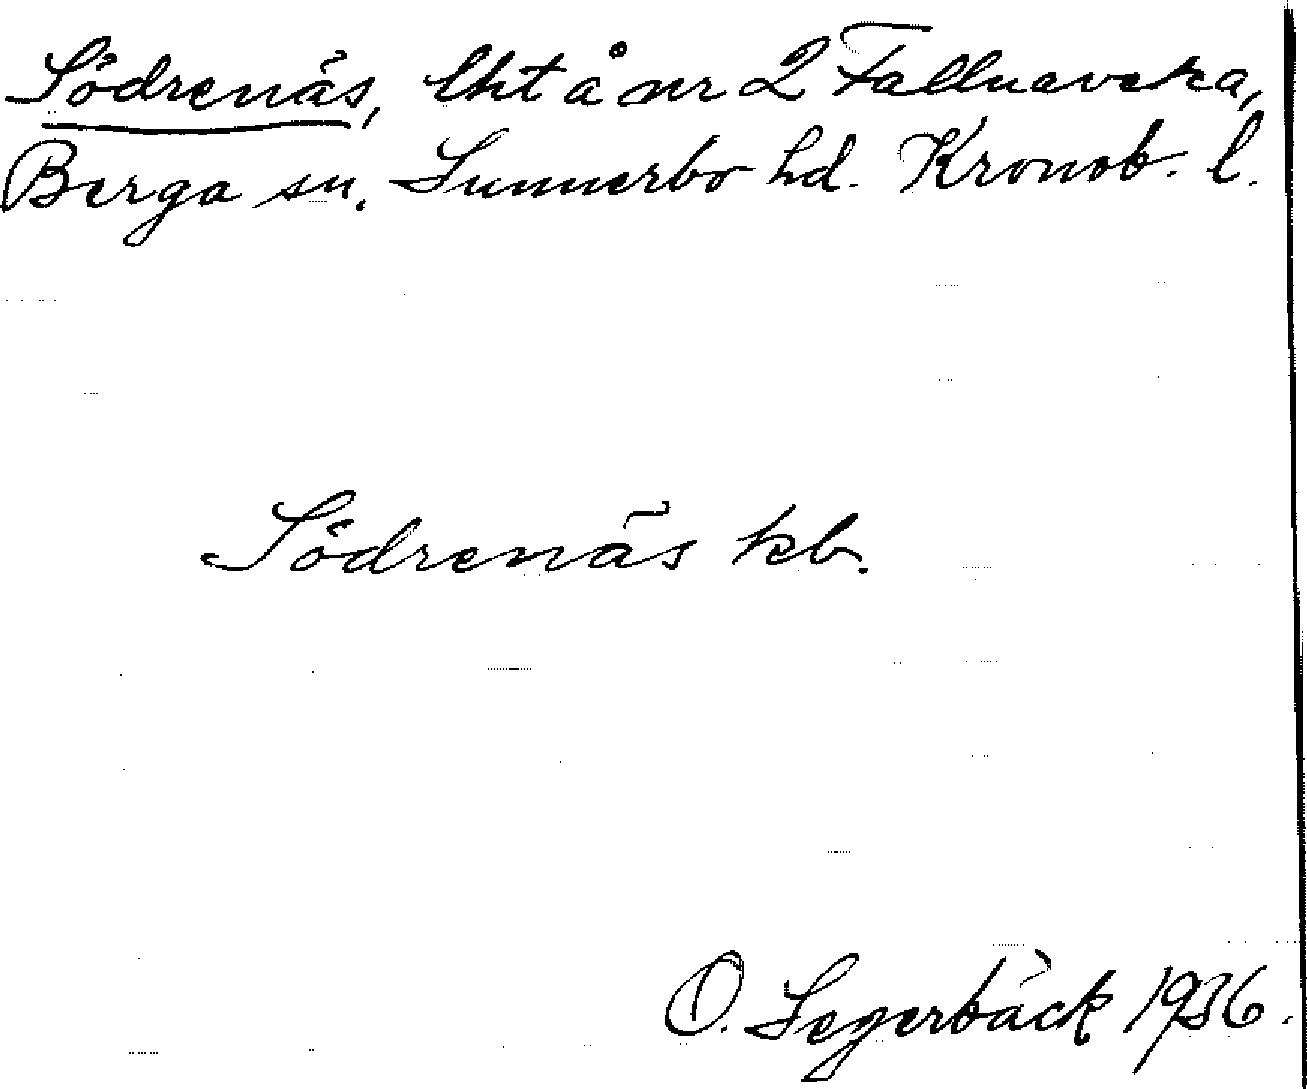 Södrenäs, lht å nr 2 Fallnaveka,
Berga sn. Sunnerbo hd. Kronob. l.
Södrenäs kb.
O. Segerbäck 1936.